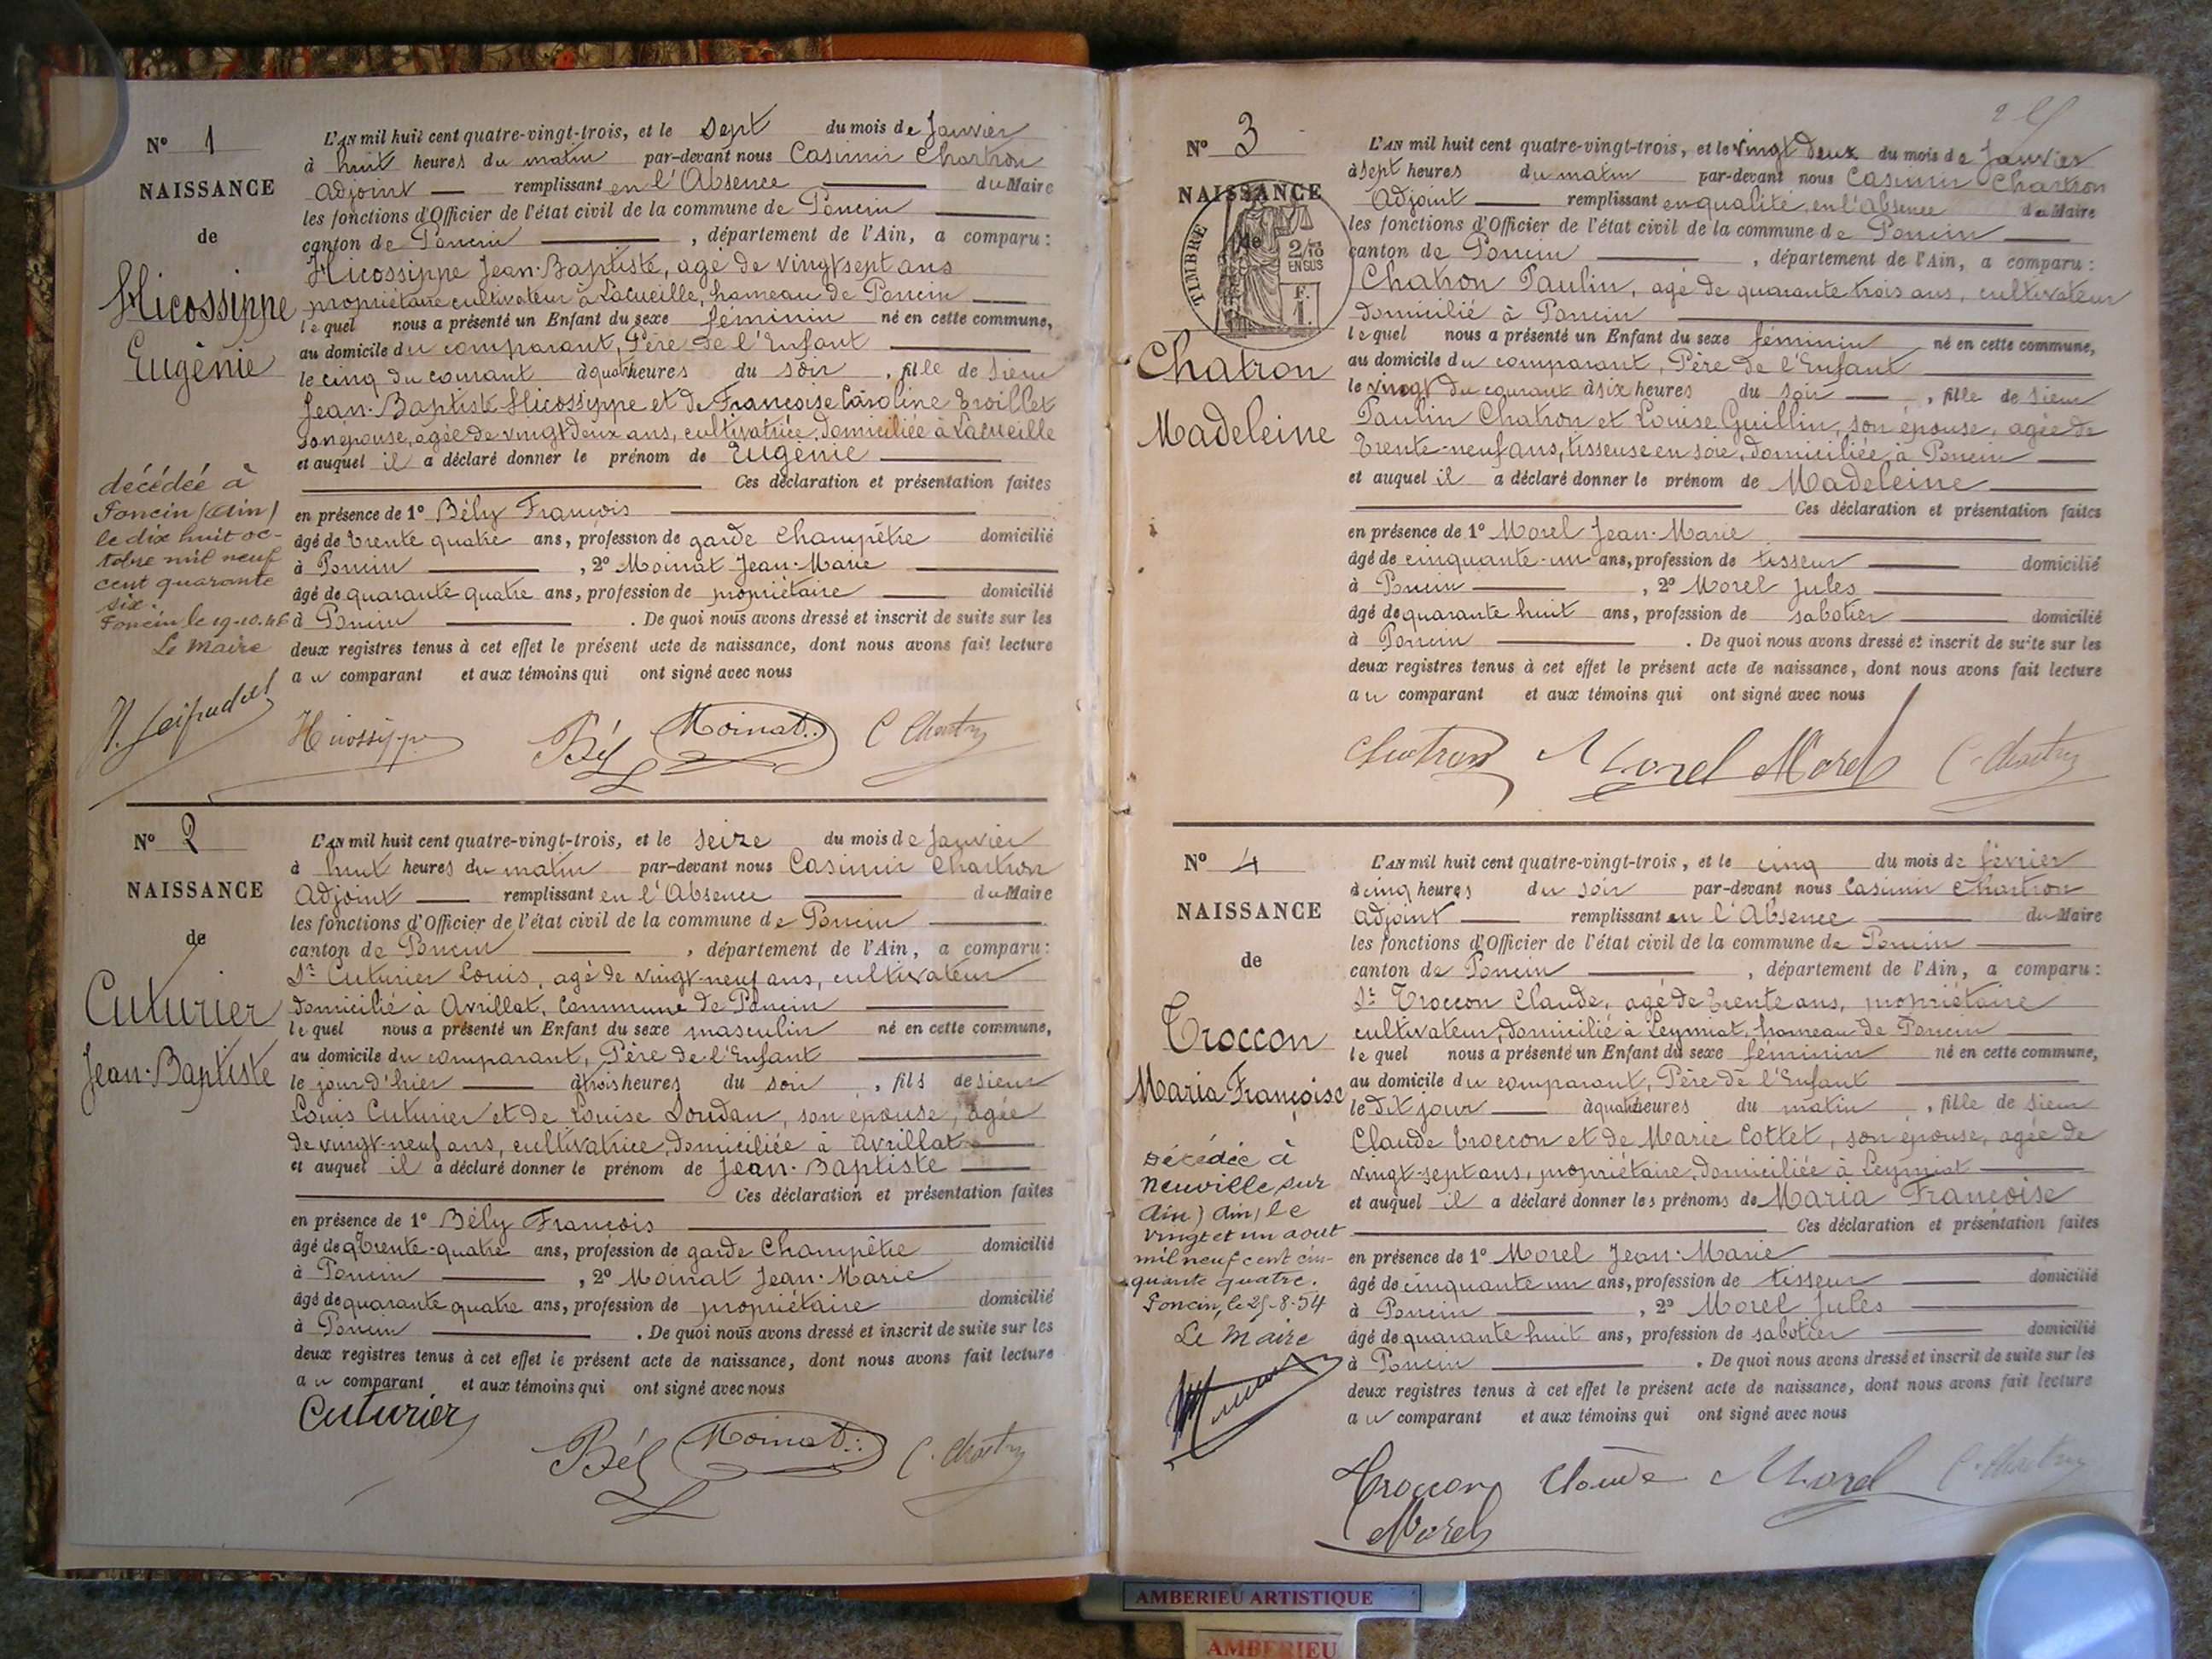 N° 1
NAISSANCE
de
Hicossippe
Eugénie
décédée à
Poncin (Ain)
le dix huit oc-
tobre mil neuf
cent quarante
six.
Poncin, le 19-10.46
Le Maire
L'AN mil huit cent quatre-vingt-trois, et le sept du mois de Janvier
à huit heures du matin par-devant nous Casimir Chartron
adjoint — remplissant en l'Absence du Maire
les fonctions d'Officier de l'état civil de la commune de Poncin
canton de Poncin , département de l'Ain, a comparu :
Hicossippe Jean-Baptiste, agé de vingt sept ans
propriétaire cultivateur à Lacueille, hameau de Poncin
lequel nous a présenté un Enfant du sexe féminin né en cette commune,
au domicile du comparant, Père de l'Enfant
le cinq du courant à quatre heures du soir , fille de sieur
Jean-Baptiste Hicossippe et de Françoise Caroline Troillet
son épouse, agée de vingt deux ans, cultivatrice, domiciliée à Lacueille
et auquel il a déclaré donner le prénom de Eugénie
Ces déclaration et présentation faites
en présence de 1° Bély François
âgé de trente quatre ans, profession de garde Champêtre domicilié
à Poncin , 2° Moinat Jean-Marie
âgé de quarante quatre ans, profession de propriétaire domicilié
à Poncin . De quoi nous avons dressé et inscrit de suite sur les
deux registres tenus à cet effet le présent acte de naissance, dont nous avons fait lecture
au comparant et aux témoins qui ont signé avec nous
Hicossippe Bély Moinat C Chartron
N° 2
NAISSANCE
de
Cuturier
Jean-Baptiste
L'AN mil huit cent quatre-vingt-trois, et le seize du mois de Janvier
à huit heures du matin par-devant nous Casimir Chartron
Adjoint — remplissant en l'Absence du Maire
les fonctions d'Officier de l'état civil de la commune de Poncin
canton de Poncin , département de l'Ain, a comparu :
Sr Cuturier Louis, agé de vingt-neuf ans, cultivateur
domicilié à Avrillat, Commune de Poncin
lequel nous a présenté un Enfant du sexe masculin né en cette commune,
au domicile du comparant, Père de l'Enfant
le jour d'hier à trois heures du soir , fils de sieur
Louis Cuturier et de Louise Soudan, son épouse, agée
de vingt-neuf ans, cultivatrice, domiciliée à Avrillat
et auquel il a déclaré donner le prénom de Jean-Baptiste
Ces déclaration et présentation faites
en présence de 1° Bély François
âgé de trente-quatre ans, profession de garde Champêtre domicilié
à Poncin , 2° Moinat Jean-Marie
âgé de quarante quatre ans, profession de propriétaire domicilié
à Poncin . De quoi nous avons dressé et inscrit de suite sur les
deux registres tenus à cet effet le présent acte de naissance, dont nous avons fait lecture
au comparant et aux témoins qui ont signé avec nous
Cuturier
Bély Moinat C. Chartron
N° 3
NAISSANCE
de
TIMBRE
2/10
EN SUS
F.
1.
Chatron
Madeleine
L'AN mil huit cent quatre-vingt-trois, et le vingt deux du mois de Janvier
à sept heures du matin par-devant nous Casimir Chartron
Adjoint — remplissant en qualité, en l'absence du Maire
les fonctions d'Officier de l'état civil de la commune de Poncin
canton de Poncin , département de l'Ain, a comparu :
Chatron Paulin, agé de quarante trois ans, cultivateur
domicilié à Poncin
lequel nous a présenté un Enfant du sexe féminin né en cette commune,
au domicile du comparant, Père de l'Enfant
le vingt du courant à six heures du soir — , fille de sieur
Paulin Chatron et Louise Guillin, son épouse, agée de
trente-neuf ans, tisseuse en soie, domiciliée à Poncin
et auquel il a déclaré donner le prénom de Madeleine
Ces déclaration et présentation faites
en présence de 1° Morel Jean-Marie
âgé de cinquante-un ans, profession de tisseur domicilié
à Poncin , 2° Morel Jules
âgé de quarante huit ans, profession de sabotier domicilié
à Poncin . De quoi nous avons dressé et inscrit de suite sur les
deux registres tenus à cet effet le présent acte de naissance, dont nous avons fait lecture
au comparant et aux témoins qui ont signé avec nous
Chatron Morel Morel C. Chartron
N° 4
NAISSANCE
de
Troccon
Maria Françoise
Décédée à
Neuville sur
Ain) Ain, le
vingt et un aout
mil neuf cent cin-
quante quatre.
Poncin, le 25-8-54
Le Maire
L'AN mil huit cent quatre-vingt-trois, et le cinq du mois de février
à cinq heures du soir par-devant nous Casimir Chartron
adjoint — remplissant en l'Absence du Maire
les fonctions d'Officier de l'état civil de la commune de Poncin
canton de Poncin , département de l'Ain, a comparu :
Sr Troccon Claude, agé de trente ans, propriétaire
cultivateur, domicilié à Leymiat, hameau de Poncin
lequel nous a présenté un Enfant du sexe féminin né en cette commune,
au domicile du comparant, Père de l'Enfant
le dit jour — à quatre heures du matin , fille de sieur
Claude Troccon et de Marie Cottet, son épouse, agée de
vingt-sept ans, propriétaire, domiciliée à Leymiat
et auquel il a déclaré donner les prénoms de Maria Françoise
Ces déclaration et présentation faites
en présence de 1° Morel Jean-Marie
âgé de cinquante un ans, profession de tisseur domicilié
à Poncin , 2° Morel Jules
âgé de quarante huit ans, profession de sabotier domicilié
à Poncin . De quoi nous avons dressé et inscrit de suite sur les
deux registres tenus à cet effet le présent acte de naissance, dont nous avons fait lecture
au comparant et aux témoins qui ont signé avec nous
Troccon Claude Morel C. Chartron
Morel
AMBERIEU ARTISTIQUE
AMBERIEU